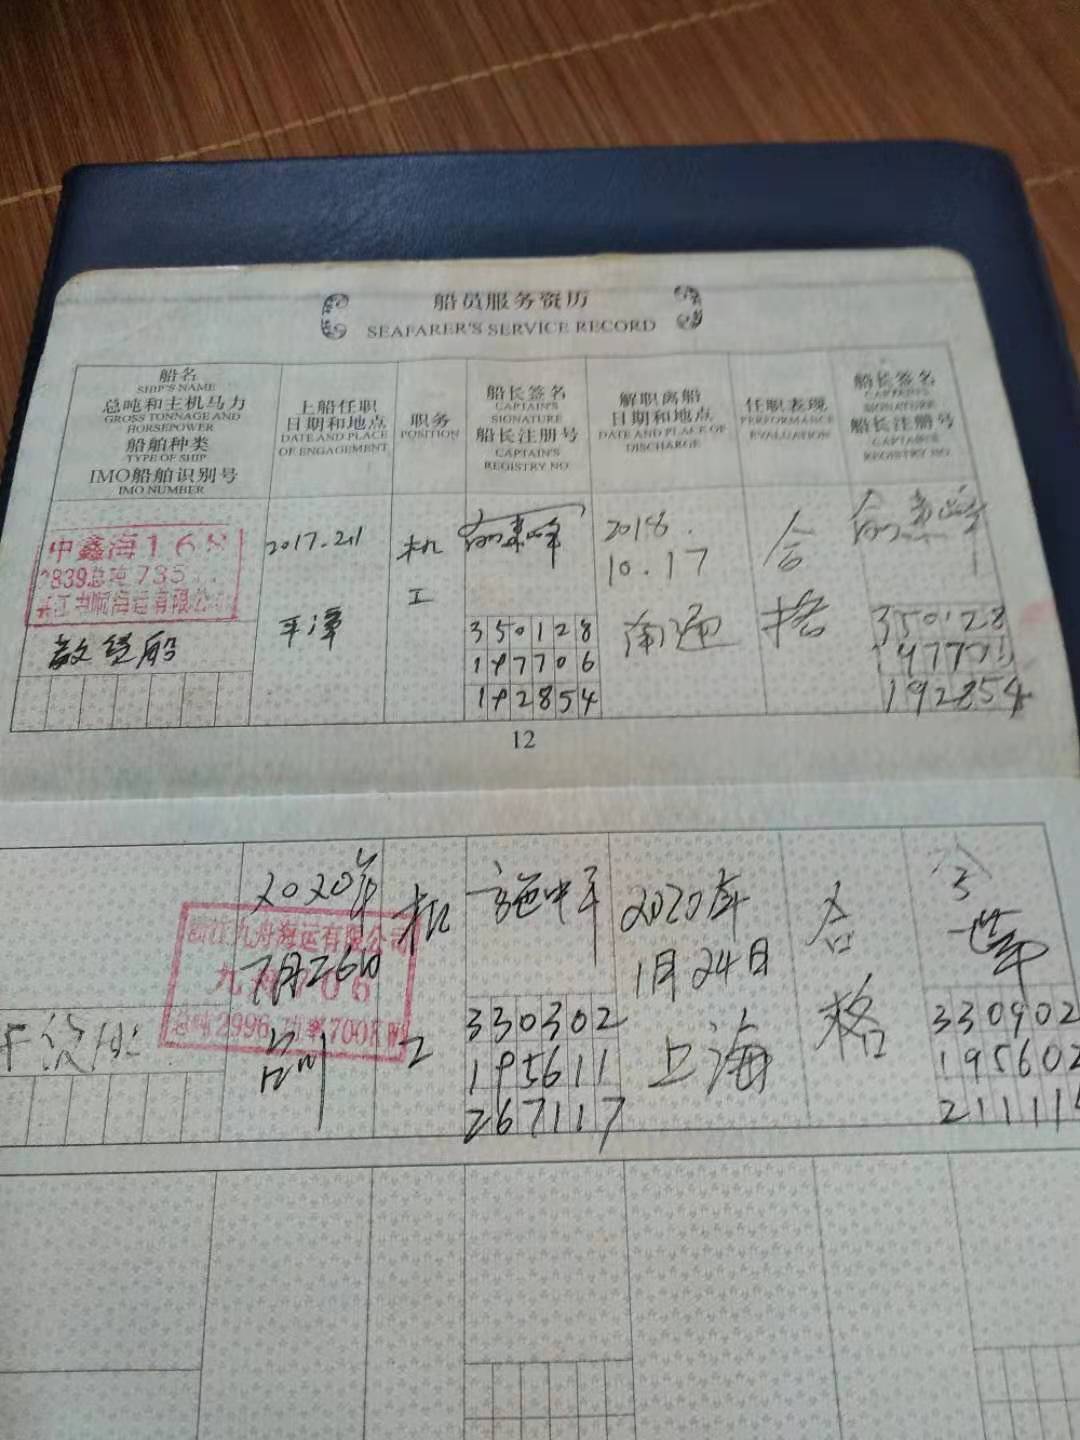 船员服务资历
SEAFARER'S SERVICE RECORD
船名
SHIP'S NAME
总吨和主机马力
GROSS TONNAGE AND
HORSEPOWER
船舶种类
TYPE OF SHIP
IMO船舶识别号
IMO NUMBER
上船任职
日期和地点
DATE AND PLACE
OF ENGAGEMENT
职务
POSITION
船长签名
CAPTAIN'S
SIGNATURE
船长注册号
CAPTAIN'S
REGISTRY NO
解职离船
日期和地点
DATE AND PLACE OF
DISCHARGE
任职表现
PERFORMANCE
EVALUATION
船长签名
CAPTAIN'S
SIGNATURE
船长注册号
CAPTAIN'S
REGISTRY NO
中鑫海168
2839总吨735
海运有限公司
散货船
2017.2.1
平潭
机
工
350128
197706
192854
2018.
10.17
南通
合
格
350128
197706
192854
12
2020年
7月26日
台州
九舟海运有限公司
总吨2996 功率
干货船
机
工
施中平
330302
195611
267117
2020年
1月24日
上海
合
格
330902
195602